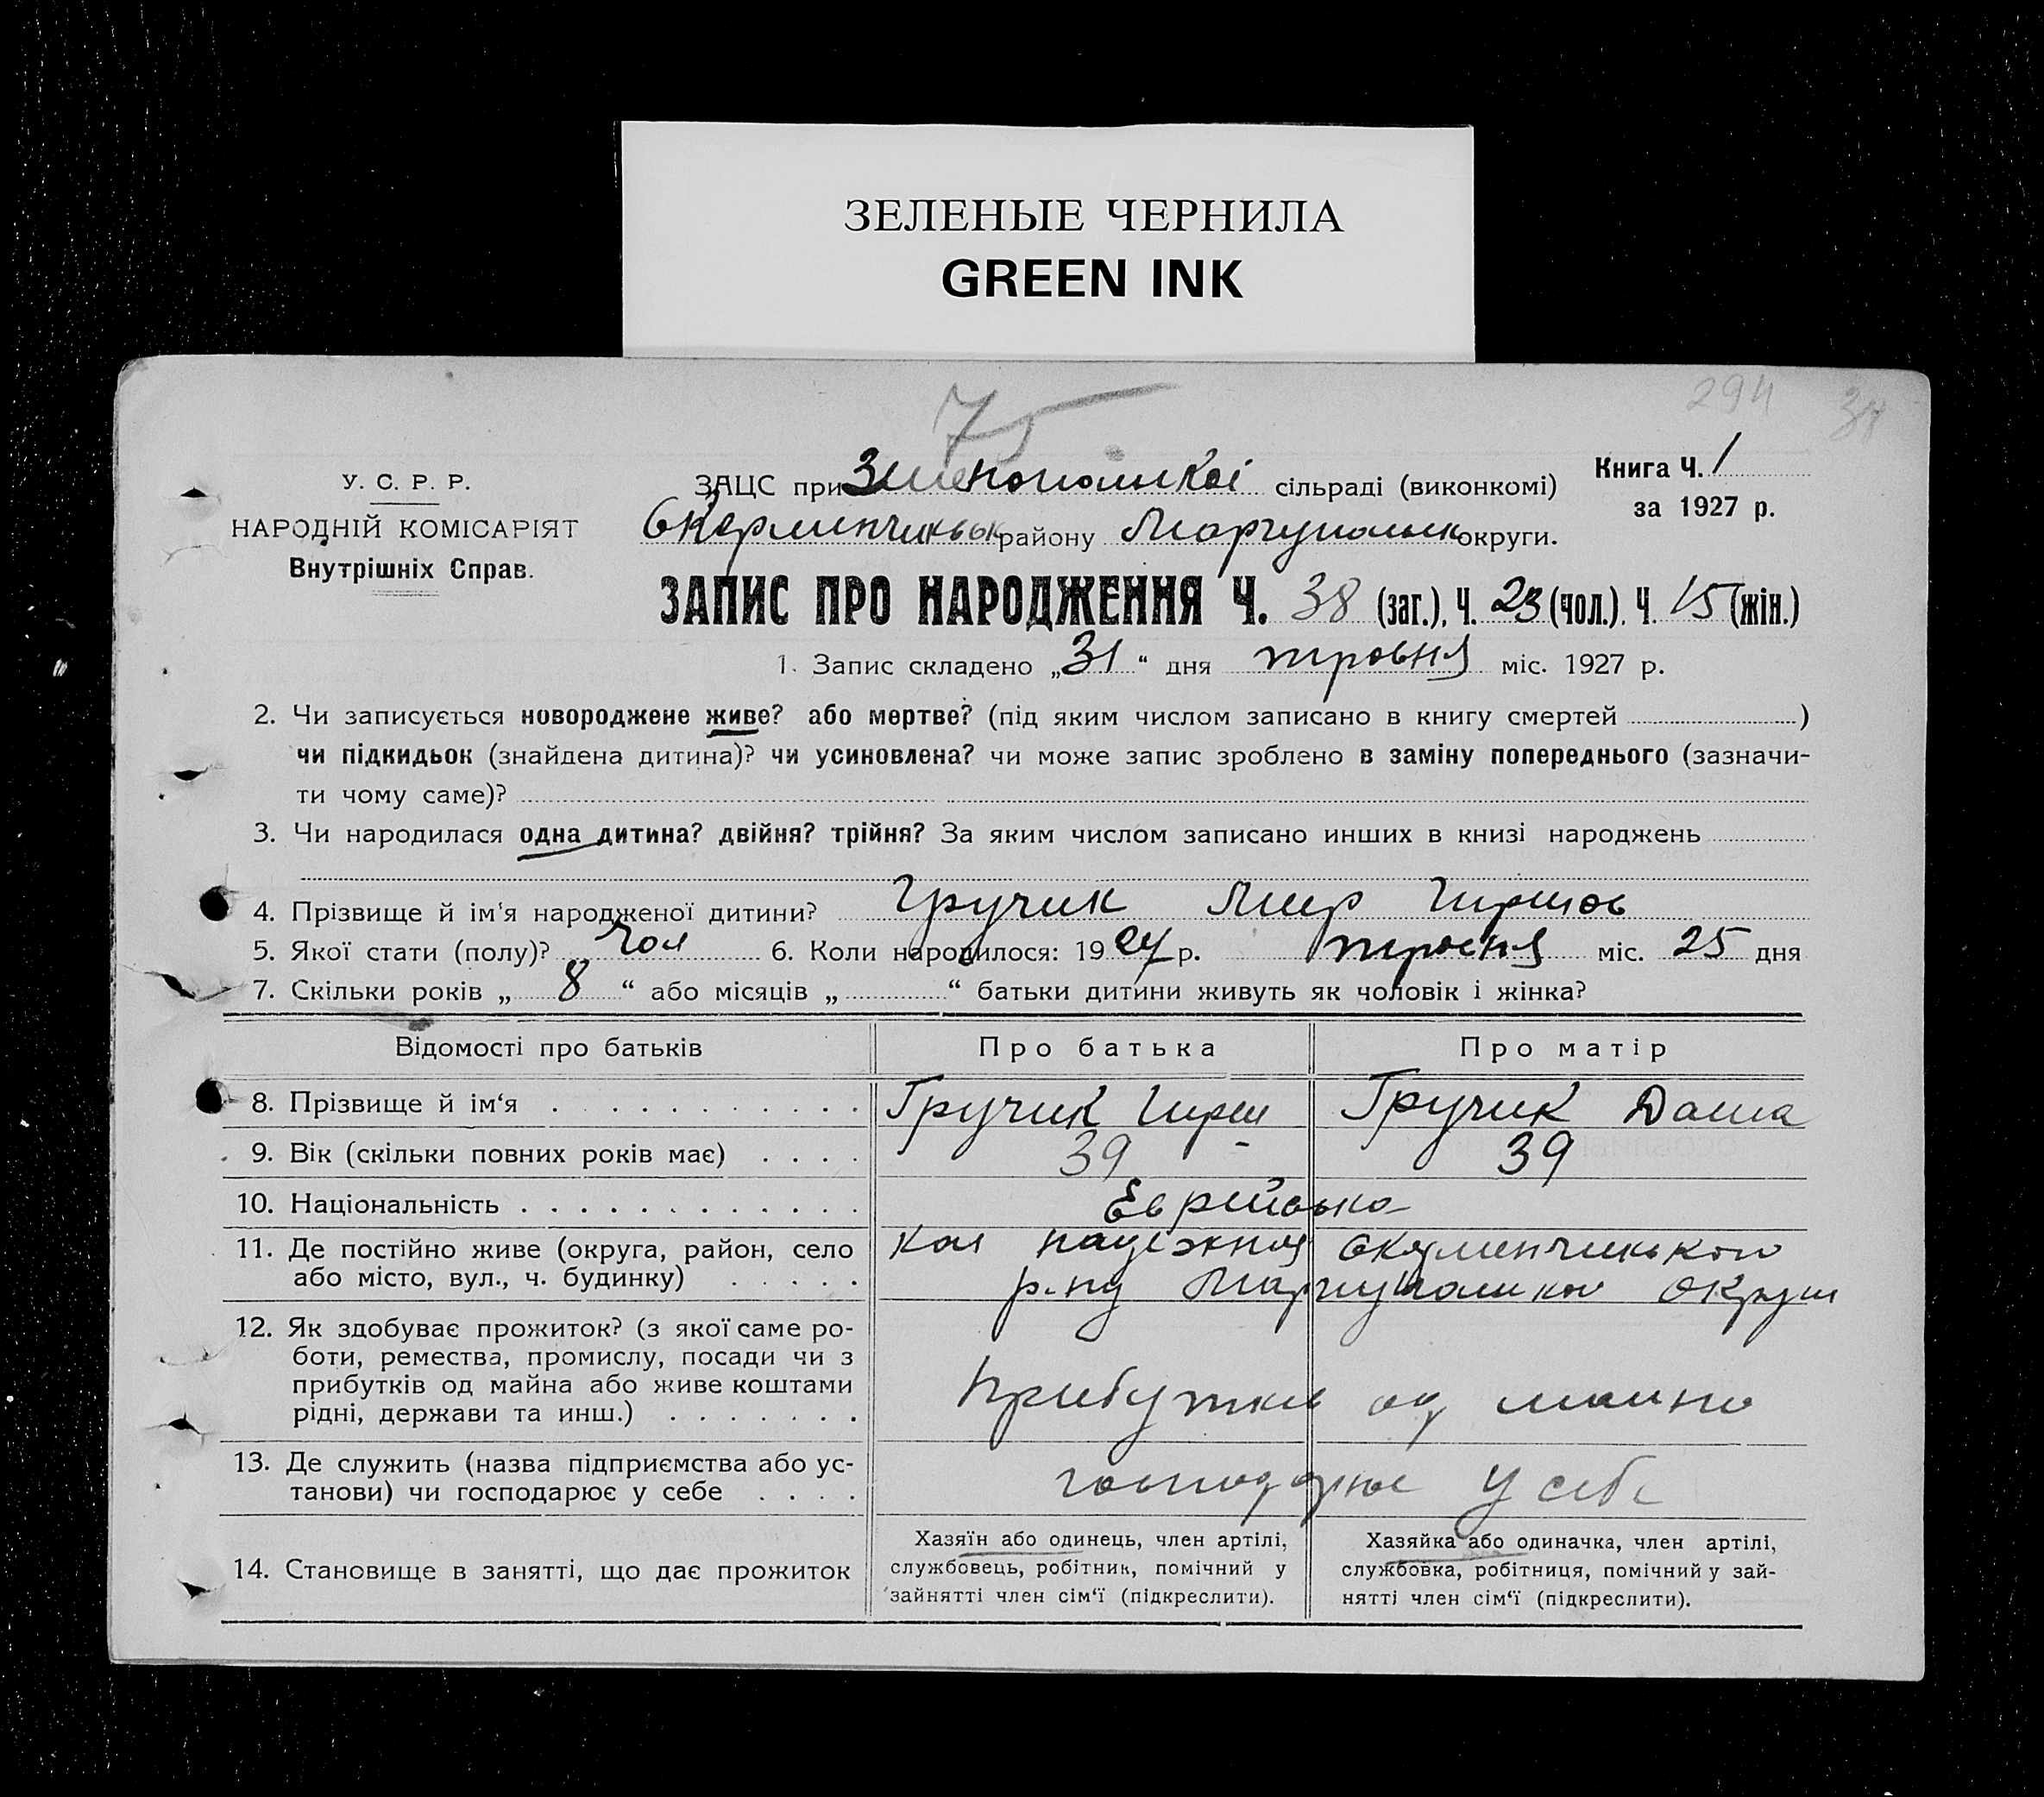 ЗЕЛЕНЫЕ ЧЕРНИЛА
GREEN INK
294
75
У. С. Р. Р.
НАРОДНІЙ КОМІСАРІЯТ
Внутрішніх Справ.
ЗАЦС при сільраді (виконкомі)
району округи.
Книга Ч. 1
за 1927 р.
ЗАПИС ПРО НАРОДЖЕННЯ Ч. 38 (заг.), Ч. 23 (чол.), Ч. 15 (жін.)
1. Запис складено „31“ дня травня міс. 1927 р.
2. Чи записується новороджене живе? або мертве? (під яким числом записано в книгу смертей )
чи підкидьок (знайдена дитина)? чи усиновлена? чи може запис зроблено в заміну попереднього (зазначи-
ти чому саме)?
3. Чи народилася одна дитина? двійня? трійня? За яким числом записано инших в книзі народжень
4. Прізвище й ім'я народженої дитини? Гручик Меер Гиршов
5. Якої стати (полу)? Чол 6. Коли народилося: 1927 р. травня міс. 25 дня
7. Скільки років „8“ або місяців „ “ батьки дитини живуть як чоловік і жінка?
Відомості про батьків Про батька Про матір
8. Прізвище й ім‘я Гручик Гирш Гручик Даша
9. Вік (скільки повних років має) 39 39
10. Національність Еврейська
11. Де постійно живе (округа, район, село
або місто, вул., ч. будинку)
кол надежная
р-ну округи
12. Як здобуває прожиток? (з якої саме ро-
боти, ремества, промислу, посади чи з
прибутків од майна або живе коштами
рідні, держави та инш.)
прибутків од майна
13. Де служить (назва підприємства або ус-
танови) чи господарює у себе
господарює у себе
14. Становище в занятті, що дає прожиток
Хазяїн або одинець, член артілі,
службовець, робітник, помічний у
зайнятті член сім‘ї (підкреслити).
Хазяйка або одиначка, член артілі,
службовка, робітниця, помічний у зай-
нятті член сім‘ї (підкреслити).